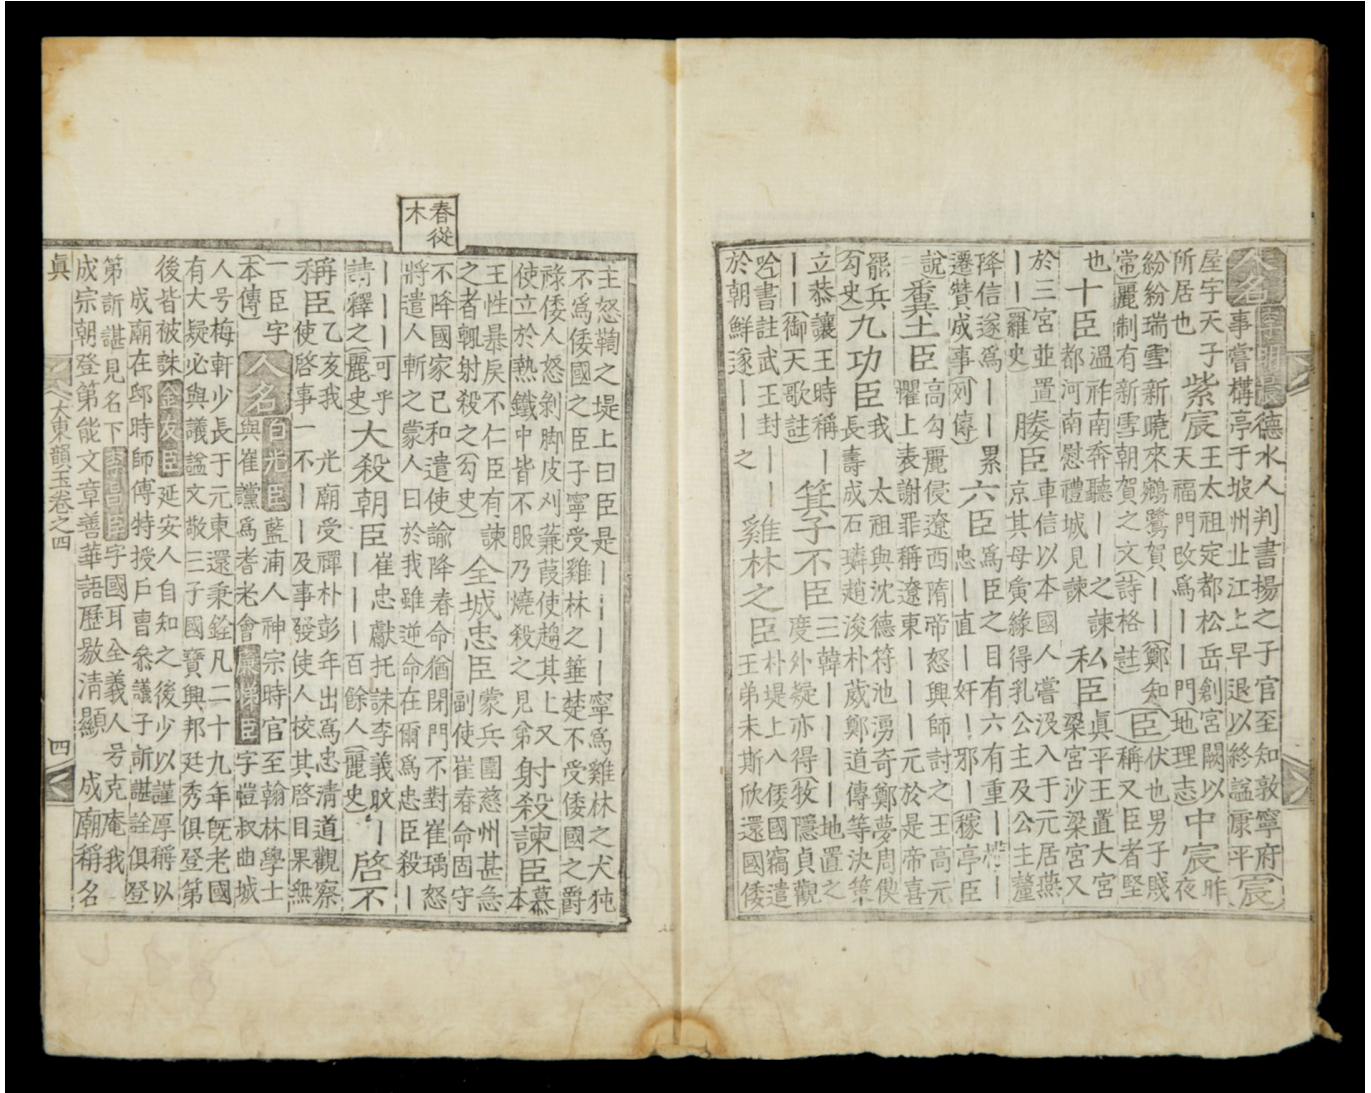 人名
德水人判書揚之子官至知敦寧府
事嘗構亭于坡州北江上早退以終謚康平(宸)
屋宇天子
所居也
紫宸
王太祖定都松岳創宮闕以
天福門改爲〡〡門(地理志)
中宸
昨夜
紛紛瑞雪新曉來鵷鷺賀〡〡(鄭知
常)麗制有新雪朝賀之文(詩格註)
(臣)
伏也男子賤
稱又臣者堅
也
十臣
溫祚南奔聽〡〡之諫
都河南慰禮城見諫
私臣
眞平王置大宮
梁宮沙梁宮又
於三宮並置
〡〡(羅史)
媵臣
車信以本國人嘗汲入于元居燕
京其母夤緣得乳公主及公主釐
降信遂爲〡〡累
遷贊成事(列傳)
六臣
爲臣之目有六有重〡權〡
忠〡直〡奸〡邪〡(稼亭臣
說)
糞土臣
高勾麗侵遼西隋帝怒興師討之王高元
懼上表謝罪稱遼東〡〡〡〡元於是帝喜
罷兵
勾史)
九功臣
我 太祖與沈德符池湧奇鄭夢周偰
長壽成石璘趙浚朴葳鄭道傳等決策
立恭讓王時稱〡
〡〡(御天歌註)
箕子不臣
三韓〡〡〡〡地置之
度外疑亦得(牧隱貞觀
吟書註武王封〡〡
於朝鮮遂〡〡〡之
雞林之臣
朴堤上入倭國竊遣
王弟未斯欣還國倭
春從
木
主怒鞫之堤上曰臣是〡〡〡〡寧爲雞林之犬㹠
不爲倭國之臣子寧受雞林之箠楚不受倭國之爵
祿倭人怒剝脚皮刈蒹葭使趨其上又
使立於熱鐵中皆不服乃燒殺之見弟
射殺諫臣
慕
本
王性暴戾不仁臣有諫
之者輒射殺之(勾史)
全城忠臣
蒙兵圍慈州甚急
副使崔春命固守
不降國家已和遣使諭降春命猶閉門不對崔瑀怒
將遣人斬之蒙人曰於我雖逆命在爾爲忠臣殺〡
〡〡〡可乎
詩釋之(麗史)
大殺朝臣
崔忠獻托誅李義旼〡
〡〡〡百餘人(麗史)
啓不
稱臣
乙亥我 光廟受禪朴彭年出爲忠清道觀察
使啓事一不〡〡及事發使人校其啓目果無
一臣字
本傳)
人名
百光臣
藍浦人神宗時官至翰林學士
與崔讜爲耆老會
悌臣
字愷叔曲城
人号梅軒少長于元東還秉銓凡二十九年旣老國
有大疑必與議謚文敬三子國寶興邦廷秀俱登第
後皆被誅 金友臣 延安人自知之後少以謹厚稱以
成廟在邸時師傅特授戶曹參議子訢諶詮俱登
第訢諶見名下 李昌臣 字國耳全義人号克庵我
成宗朝登第能文章善華語歷敭清顯 成廟稱名
眞
大東韻玉卷之四
四